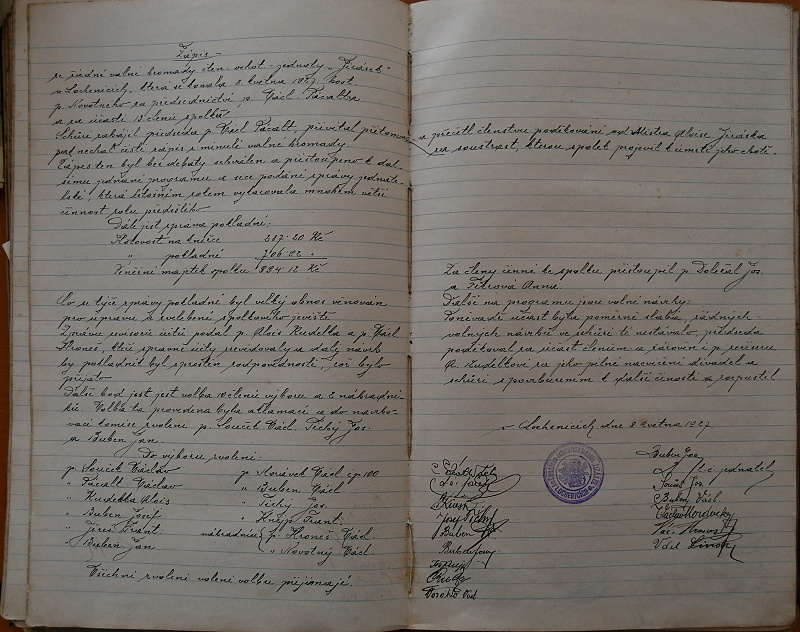 Zápis
o řádné valné hromady čten. ochot. jednoty „Jirásek“
v Lochenicích, která se konala 8 května 1927 v host.
p. Novotného za předsednictví p. Václ. Pacalta
a za účasti 13 členů spolku.
Schůzi zahájil předseda p. Václ. Pacalt, přivítal přítomné
pak nechal čísti zápis z minulé valné hromady.
Zápis ten byl bez debaty schválen a přistoupeno k dal-
šímu jednání programu a sice podání zprávy jednate-
lské, která letošním rokem vykazovala mnohem větší
činnost roku předešlého.
Dále jest zpráva pokladní:
Hotovost na knížce
„ pokladní
Peněžní majetek spolku 894.12 Kč
Co se týče zprávy pokladní byl velký obnos věnován
pro úpravu a zvelebení spolkového jeviště.
Zprávu revisorů účtů podal p. Alois Kudelka a p. Václ.
Hroneš, kteří správné účty revidovaly a dali návrh
by pokladník byl sproštěn zodpovědnosti, což bylo
přijato.
Další bod jest jest volba 10 členů výboru a 2 náhradní-
ků. Volba ta provedena byla aklamací a do navrho-
vací komise zvoleni p. Souček Václ. Tichý Jos.
a Buben Jan.
Do výboru zvoleni:
p. Souček Václav p. Morávek Václ. čp 100
„ Pacalt Václav „ Buben Václ.
„ Kudelka Alois „ Tichý Jos.
„ Buben Josef „ Knejp Frant.
„ Jireš Frant. náhradníci p. Hroneš Václ.
„ Buben Jan „ Novotný Václ.
Všichni zvolení volení volbu přijímají.
a přečetl členstvu poděkování od Mistra Aloise Jiráska
za soustrast, kterou spolek projevil k úmrtí jeho choti.
Za členy činné ke spolku přistoupil p. Doležal Jos.
a Anna.
Další na programu jsou volné návrhy:
Poněvadž účast byla poměrně slabá, řádných
volných návrhů ve schůzi té nestávalo, předseda
poděkoval za účast členům a zároveň i p. režiseru
za jeho pilné nacvičení divadel a
schůzi s povzbuzením k další činnosti a rozpustil
v Lochenicích dne 8 května 1927.
Buben Jos.
jednatel
Souček Jos.
Buben Václ.
Josef Tichý
Buben
Václ. Hroneš